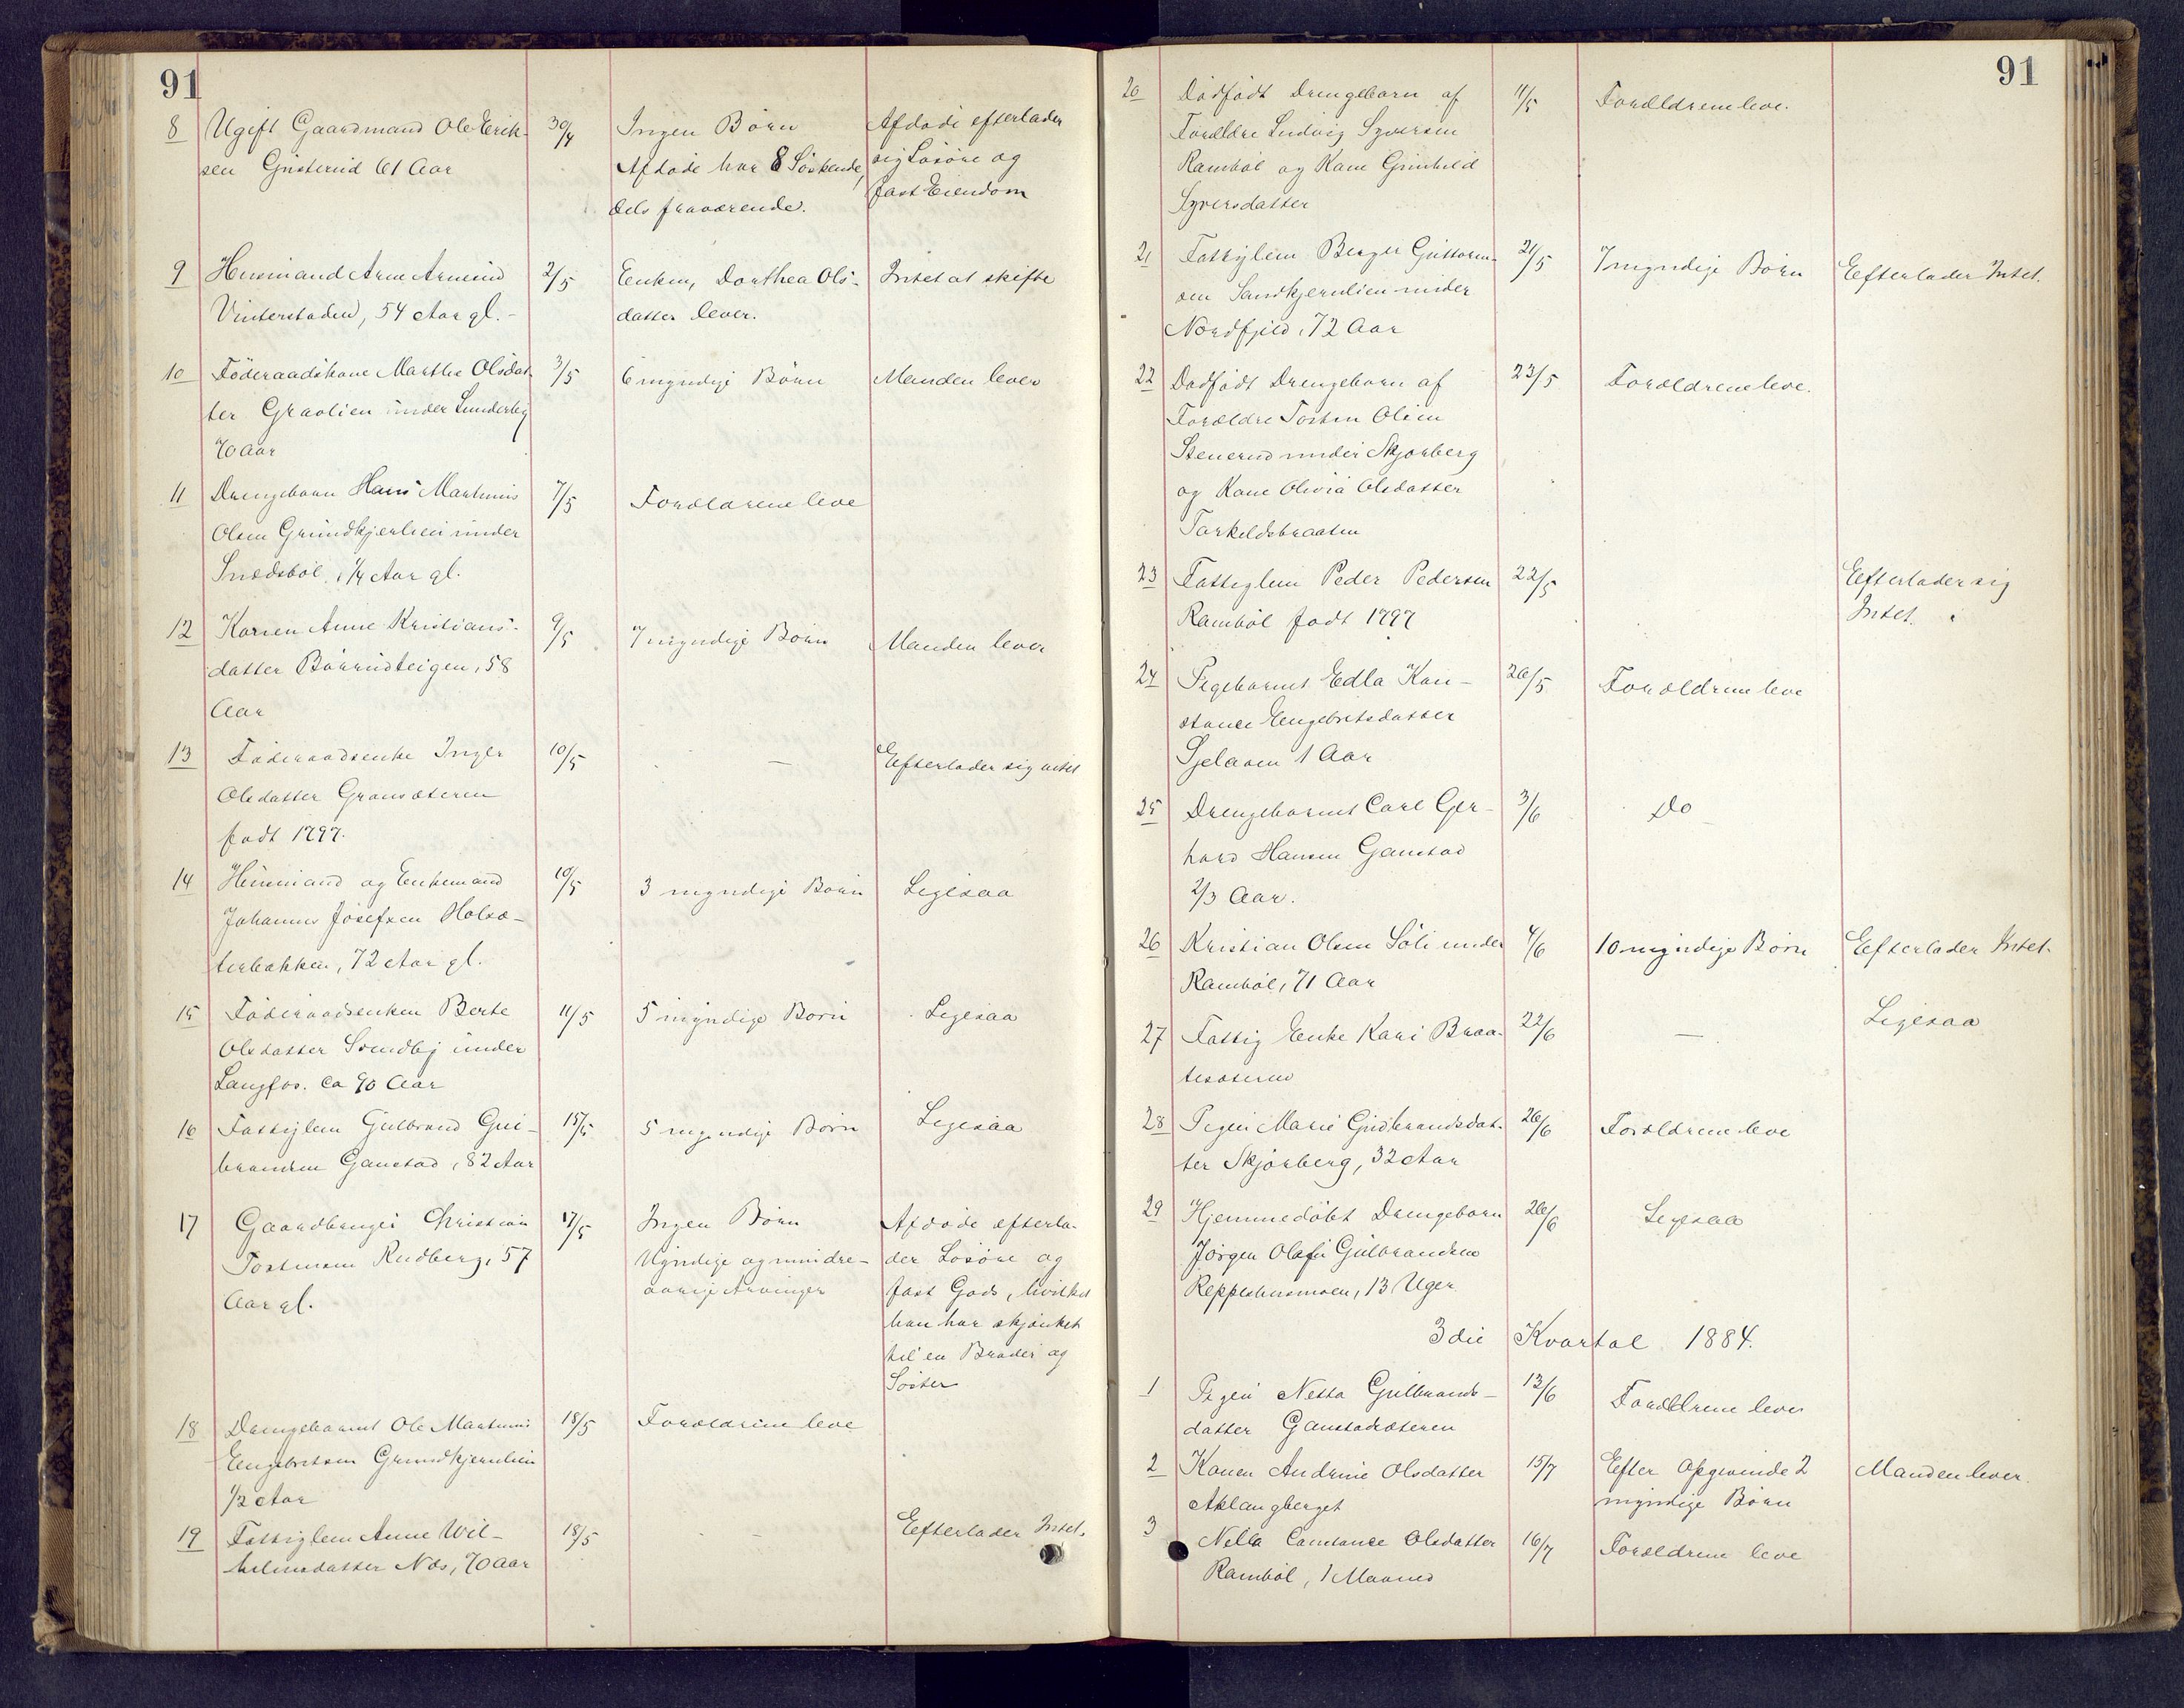 91
8 Ugift Gaardmand Ole Erik- 30/4 Ingen Børn Afdøde efterlader
sen Gusterud 61 Aar Afdøde har 8 Søskende, sig Løsøre og
dels fraværende. fast Eiendom
9 Husmand Arne Arnesen 2/5 Enken, Dorthea Ols- Intet at skifte
Vinterstaden, 54 Aar gl. - datter lever.
10 Föderaadskone Marthe Olsdat- 3/5 6 myndige Børn Manden lever
ter Graolien under Sunderby
70 Aar
11 Drengebarn Hans Martinius 7/5 Forældrene leve
Olsen Grundkjernlien under
Snedsböl, 1/4 Aar gl.
12 Konen Anne Kristians- 9/5 7 myndige Børn Manden lever
datter Börrudteigen, 58
Aar
13 Föderaadsenke Inger 10/5 — Efterlader sig intet
Olsdatter Gransæteren
født 1797.
14 Husmand og Enkemand 10/5 3 myndige Børn Ligesaa
Johannes Josefsen Holsæ-
terbakken, 72 Aar gl.
15 Föderaadsenken Berte 11/5 5 myndige Børn Ligesaa
Olsdatter Svendby under
Langfos. Ca 90 Aar
16 Fattiglem Gulbrand Gul- 15/5 5 myndige Børn Ligesaa
brandsen Ganstad, 82 Aar
17 Gaardbruger Christian 17/5 Ingen Børn Afdøde efterla-
Tostensen Rudberg, 57 Myndige og mindre- der Løsøre og
Aar gl. aarige Arvinger fast Gods, hvilket
han har skjænket
til en Broder og
Søster
18 Drengebarnet Ole Martinius 18/5 Forældrene leve
Engebretsen Grundkjernlien
1/2 Aar
19 Fattiglem Anne Wil- 18/5 - Efterlader Intet.
helmsdatter Næs, 70 Aar
91
20 Dødfødt Drengebarn af 11/5 Forældrene leve.
Forældre Ludvig Syversen
Ramböl og Kone Gunhild
Syversdatter
21 Fattiglem Berger Guttorm- 21/5 7 myndige Børn Efterlader Intet.
sen Sandkjernlien under
Nordfjeld, 72 Aar
22 Dødfødt Drengebarn af 23/5 Forældrene leve.
Forældre Tosten Olsen
Stenerud under Skjørberg
og Kone Olivia Olsdatter
Torkeldsbraaten
23 Fattiglem Peder Pedersen 22/5 Efterlader sig
Ramböl født 1797 Intet.
24 Pigebarnet Edla Kon- 26/5 Forældrene leve
stance Engebretsdatter
Sjelaasen 1 Aar
25 Drengebarnet Carl Ger- 3/6 Do
hard Hansen Ganstad
2/3 Aar.
26 Kristian Olsen Söli under 4/6 10 myndige Børn Efterlader Intet.
Ramböl, 71 Aar
27 Fattig Enke Kari Braa- 22/6 — Ligesaa
tesæteren
28 Pigen Marie Gudbrandsdat- 26/6 Forældrene leve
ter Skjørberg, 32 Aar
29 Hjemmedøbt Drengebarn 26/6 Ligesaa
Jørgen Olafu Gulbrandsen
Reppeshusmoen, 13 Uger
3die Kvartal 1884.
1 Pigen Netta Gulbrands- 13/6 Forældrene lever
datter Ganstadsæteren
2 Konen Andrine Olsdatter 15/7 Efter Opgivende 2 Manden lever.
Aklangberget myndige Børn
3 Nella Constance Olsdatter 16/7 Forældrene leve
Ramböl, 1 Maaned